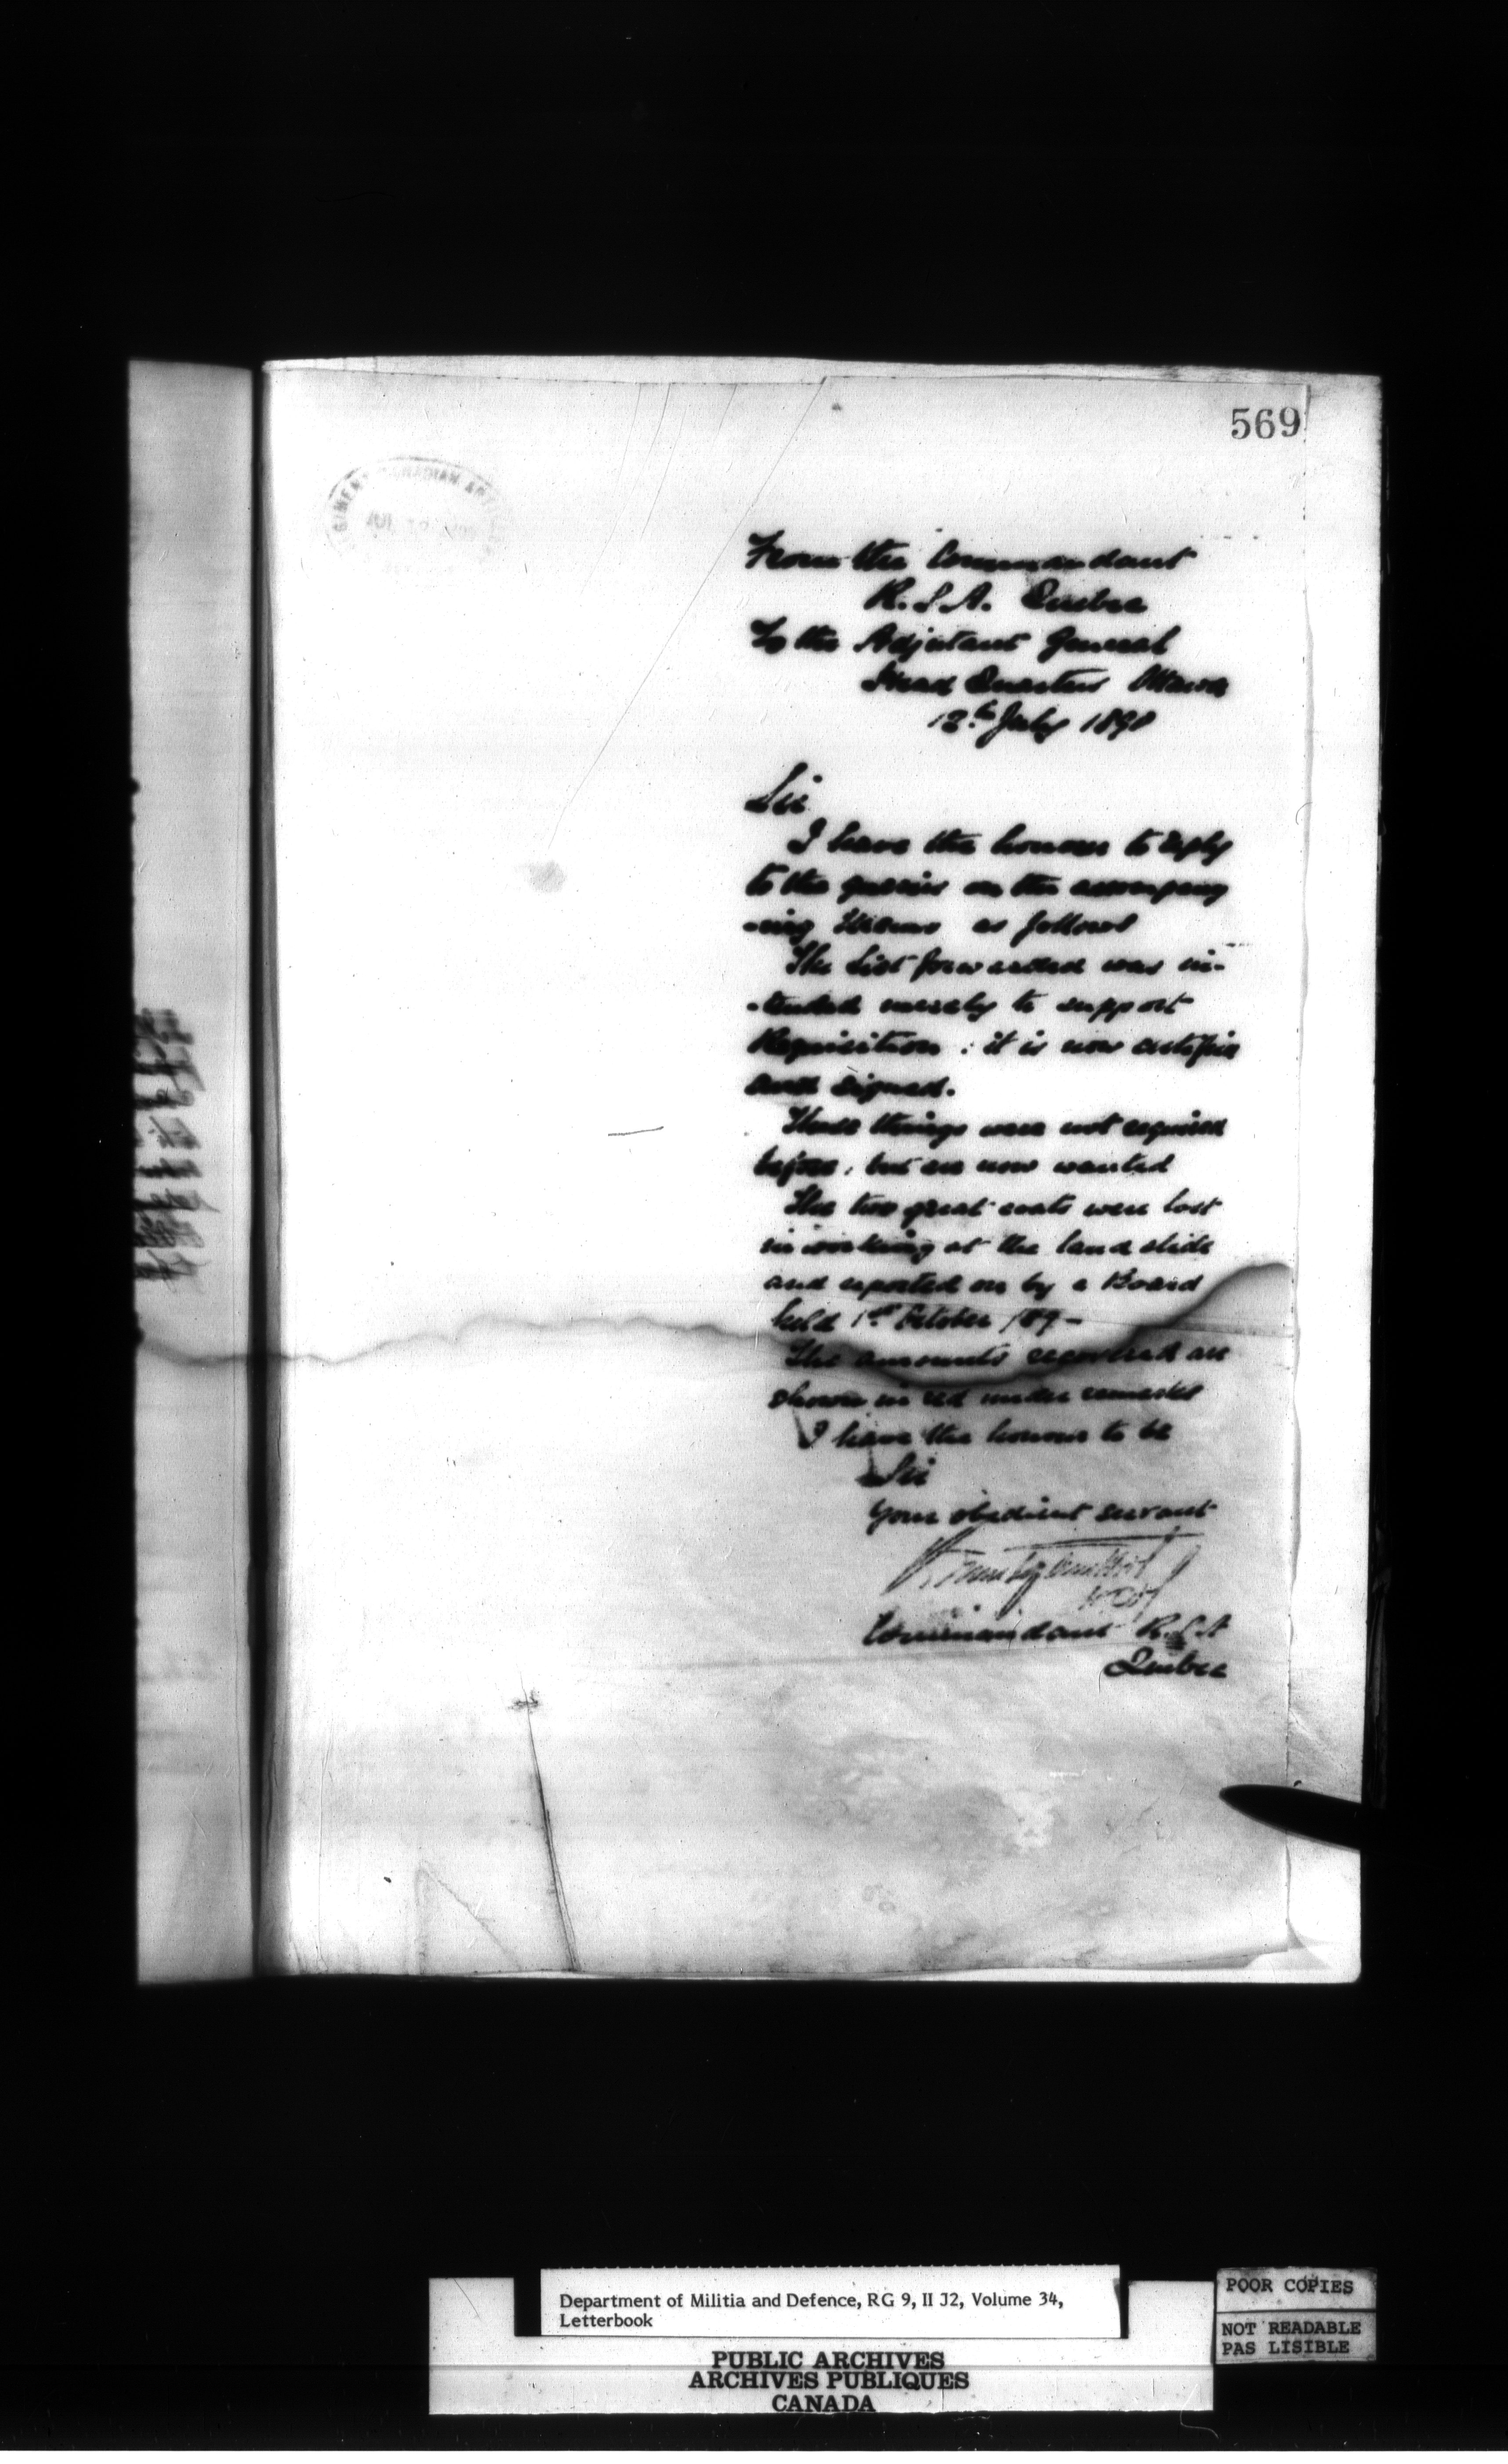 569
CANADIAN
From the Commandant
R.S.A. Quebec
To the Adjutant General
Head Quarters Ottawa
12th July 1890
Sir
I have the honour to reply
to the queries on the accompany
-ing as follows
The List forwarded was in-
-tended merely to support
Requisition : it is now
and signed.
These things were not required
before, but are now wanted
The two great coats were lost
in working at the land slide
and reported on by a Board
held 1st October 189-
The amounts are
shown in red under remarks
I have the honour to be
Sir
Your obedient servant
Commandant R.S.A
Quebec
Department of Militia and Defence, RG 9, II J2, Volume 34,
Letterbook
PUBLIC ARCHIVES
ARCHIVES PUBLIQUES
CANADA
POOR COPIES
NOT READABLE
PAS LISIBLE